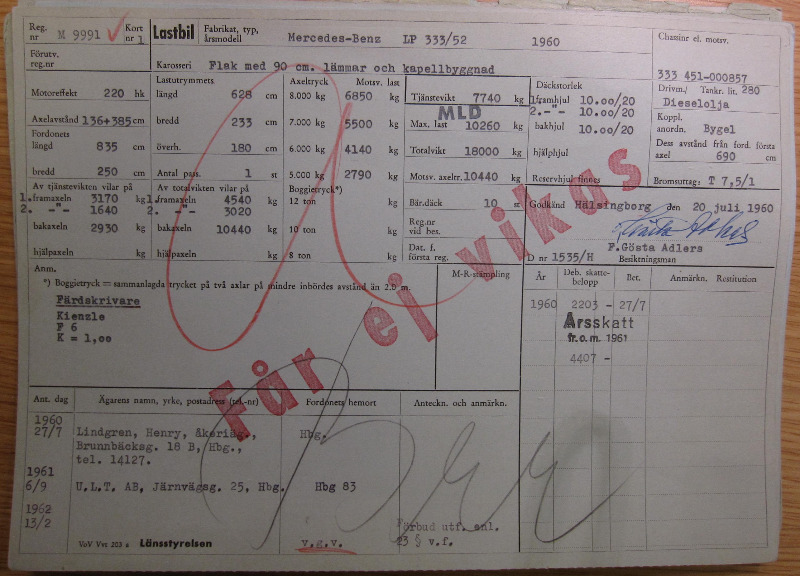 Reg. nr M 9991 Kort nr 1 Lastbil Fabrikat, typ, årsmodell Mercedes-Benz LP 333/52 1960 Chassinr el. motsv.
333 451-000857
Förutv. reg.nr Karosseri Flak med 90 cm. lämmar och kapellbyggnad
Motoreffekt 220 hk
Axelavstånd 136+385 cm
Fordonets längd 835 cm
bredd 250 cm
Lastutrymmets längd 628 cm
bredd 233 cm
överh. 180 cm
Antal pass. 1 st
Axeltryck Motsv. last
8.000 kg 6850 kg
7.000 kg 5500 kg
6.000 kg 4140 kg
5.000 kg 2790 kg
Boggietryck*)
12 ton kg
10 ton kg
8 ton kg
Tjänstevikt 7740 kg
MLD
Max. last 10260 kg
Totalvikt 18000 kg
Motsv. axeltr. 10440 kg
Bär.däck 10 st
Reg.nr vid bes.
Dat. f. första reg.
Däckstorlek
1. framhjul 10.00/20
2. -"- 10.00/20
bakhjul 10.00/20
hjälphjul
Reservhjul finnes
Drivm./ Tankr. lit. 280
Dieselolja
Koppl. anordn. Bygel
Dess avstånd från ford. första axel 690 cm
Bromsuttag: T 7,5/1
Av tjänstevikten vilar på
1. framaxeln 3170 kg
2. -"- 1640
bakaxeln 2930 kg
hjälpaxeln kg
Av totalvikten vilar på
1. framaxeln 4540 kg
2. -"- 3020
bakaxeln 10440 kg
hjälpaxeln kg
Godkänd Hälsingborg den 20 juli, 1960
Gösta Adlers
F.Gösta Adlers
D nr 1535/H Besiktningsman
Anm.
*) Boggietryck = sammanlagda trycket på två axlar på mindre inbördes avstånd än 2.0 m.
M-R-stämpling
Färdskrivare
Kienzle
F 6
K = 1,00
År Deb. skattebelopp Bet. Anmärkn. Restitution
1960 2203 - 27/7
Årsskatt
fr.o.m. 1961
4407 -
Får ej vikas
Ant. dag Ägarens namn, yrke, postadress (tel.-nr) Fordonets hemort Anteckn. och anmärkn.
1960
27/7 Lindgren, Henry, åkeriäg., Hbg.
Brunnbäcksg. 18 B, Hbg.,
tel. 14127.
1961
6/9 U.L.T. AB, Järnvägsg. 25, Hbg. Hbg 83
1962
13/2 Förbud utf. enl.
23 § v.f.
VoV Vvt 203 a Länsstyrelsen v.g.v.